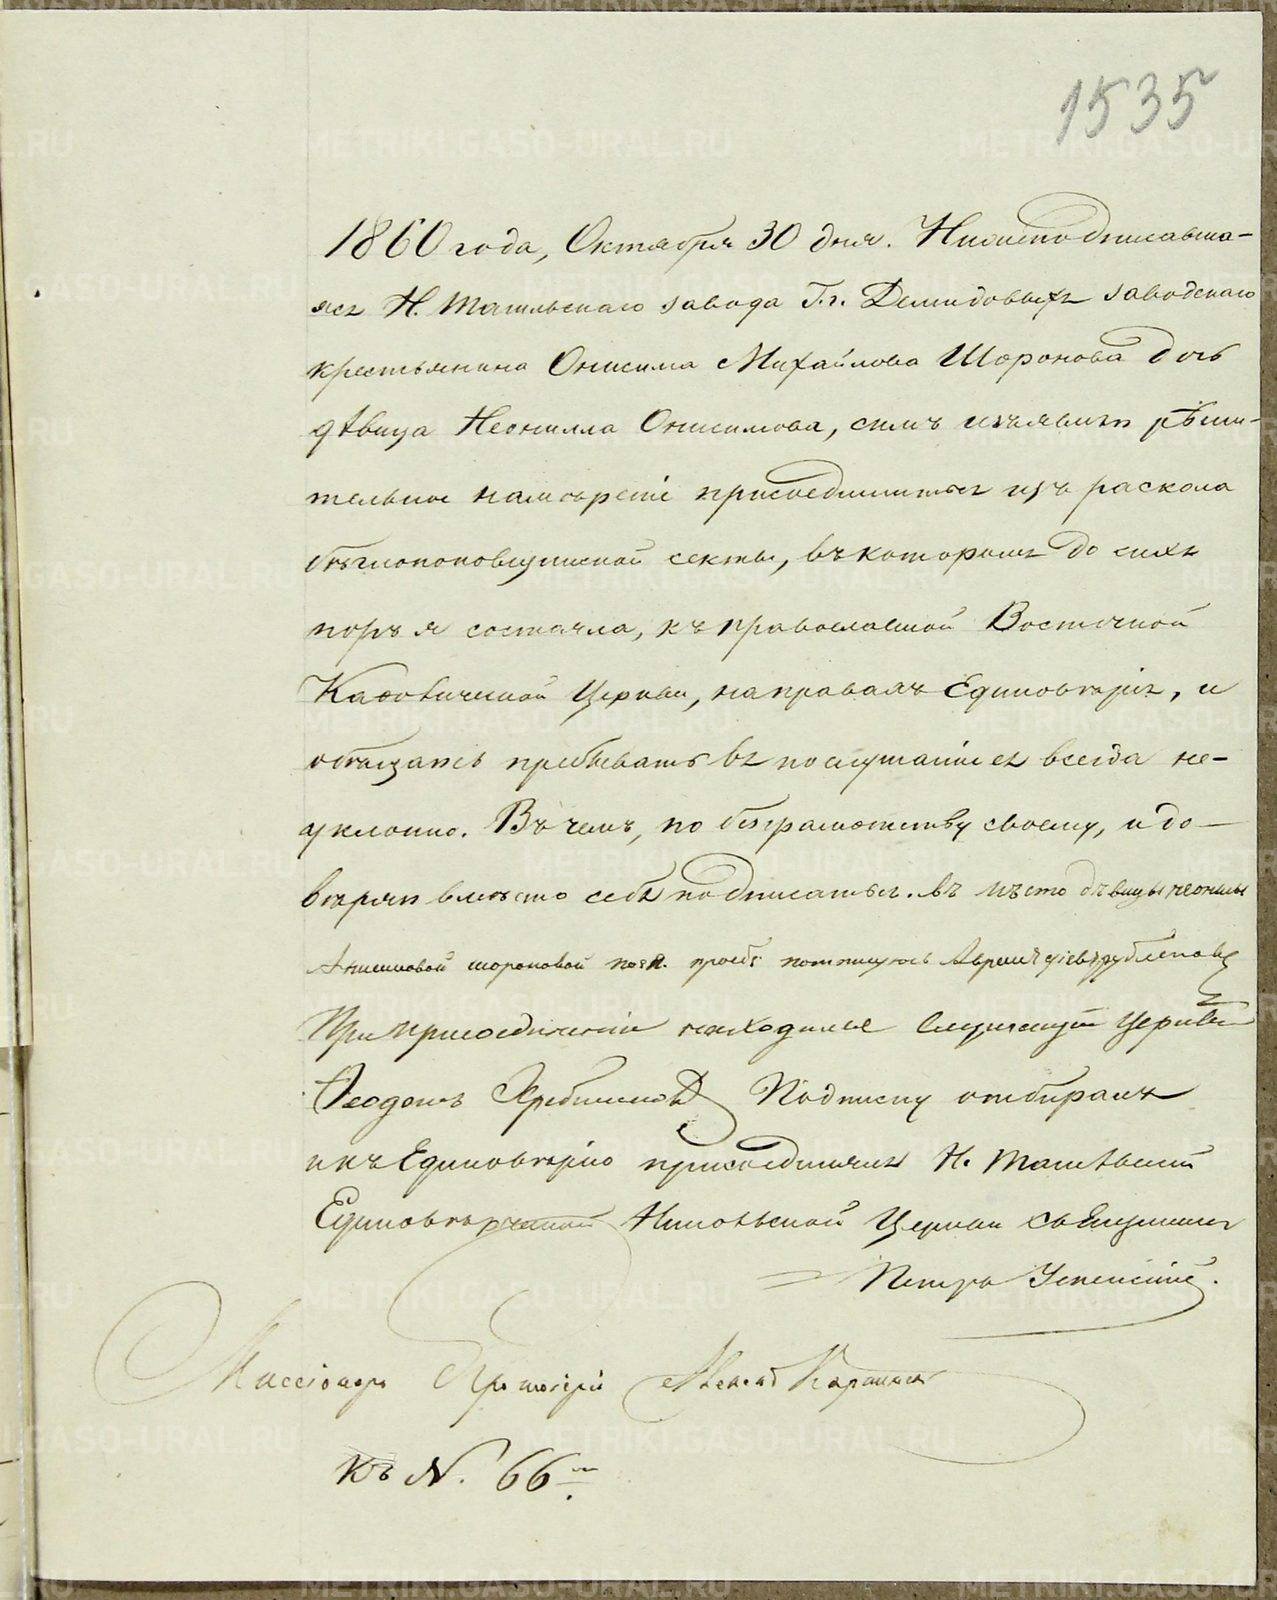 1535
1860 года, Октября 30 дня. Нижеподписавша-
яся Н. Тагильскаго завода Г.г. Демидовыхъ заводскаго
крестьянина Онисима Михайлова Шоронова дочь
дѣвица Неонилла Онисимова, симъ изъявляю рѣши-
тельное намѣреніе присоединиться изъ раскола
бѣглопоповщинской секты, въ которомъ до сихъ
поръ я состояла, къ православной Восточной
Каѳолической Церкви, на правахъ Единовѣрія, и
обѣщаюсь пребывать въ послушаніи ея всегда не-
уклонно. Въ чемъ, по безграмотству своему, и до-
вѣряю вмѣсто себя подписаться. въ мѣсто дѣвицы неонилы
Анисимовой шороновой по ея прозбѣ потписуюсь
При присоединеніи находился Служащій Церкви
Подписку отбиралъ
и къ Единовѣрію присоединялъ Н. Тагильской
Единовѣрческой Никольской Церкви священникъ
Петръ Успенскій.
Миссіонеръ Протоіерей
Къ N. 66-
METRIKI.GASO-URAL.RU